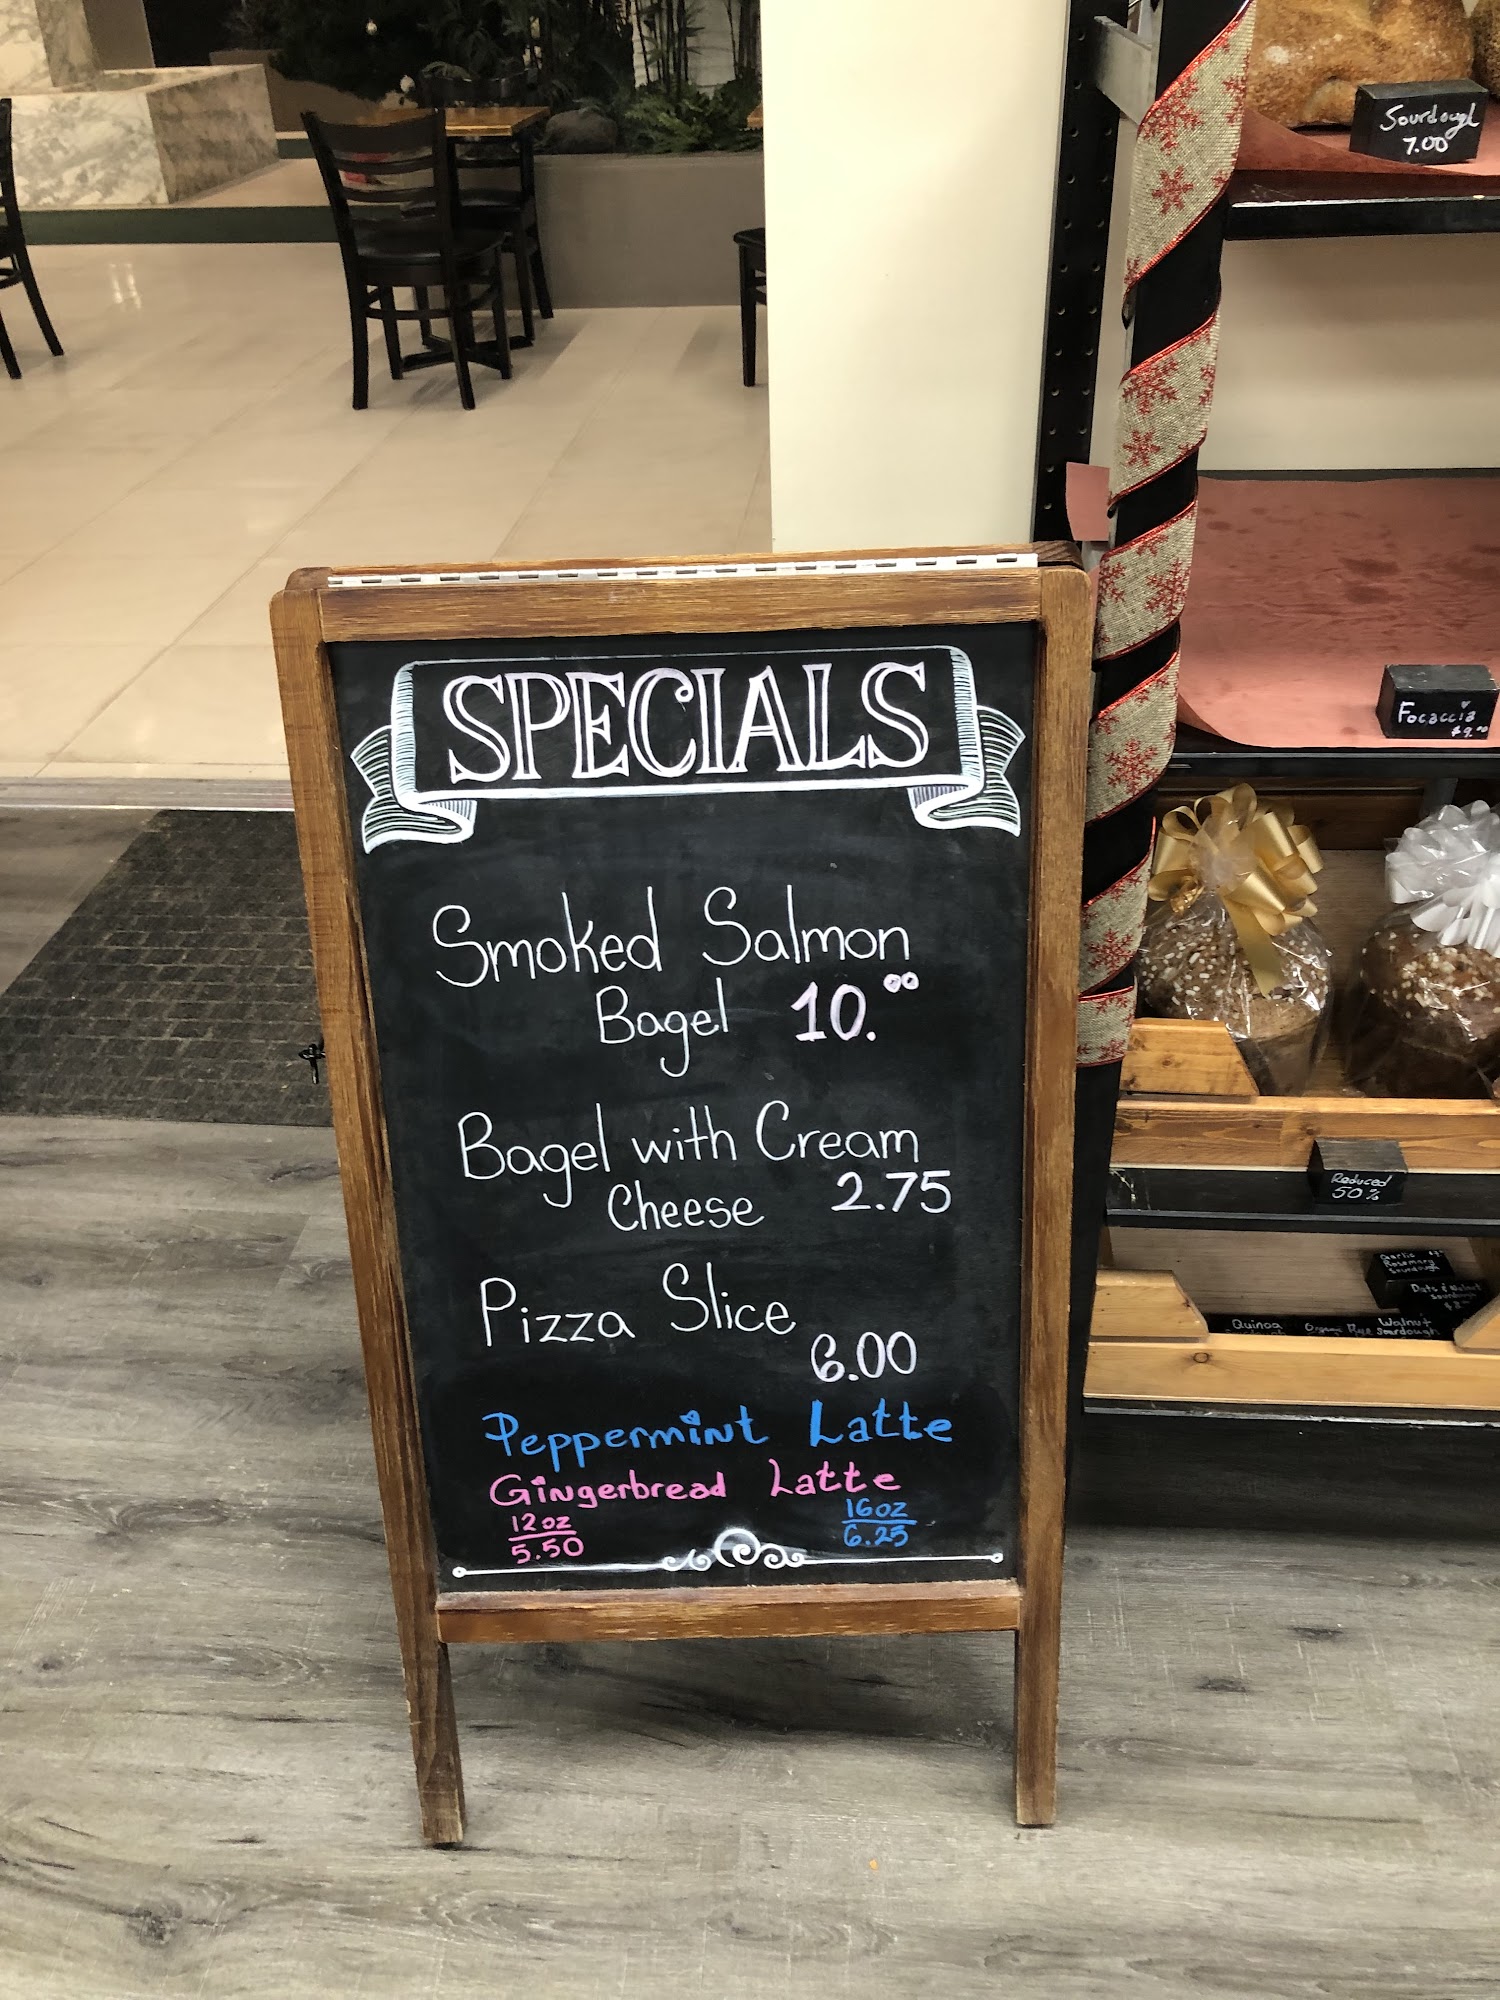 SPECIALS
Smoked Salmon
Bagel 10.00
Bagel with Cream
Cheese 2.75
Pizza Slice
6.00
Peppermint Latte
Gingerbread Latte
12oz
5.50
16oz
6.25
Sourdough
7.00
Focaccia
Reduced
50%
Garlic
Rosemary
Sourdough
Walnut
Sourdough
Quinoa
Walnut
sourdough